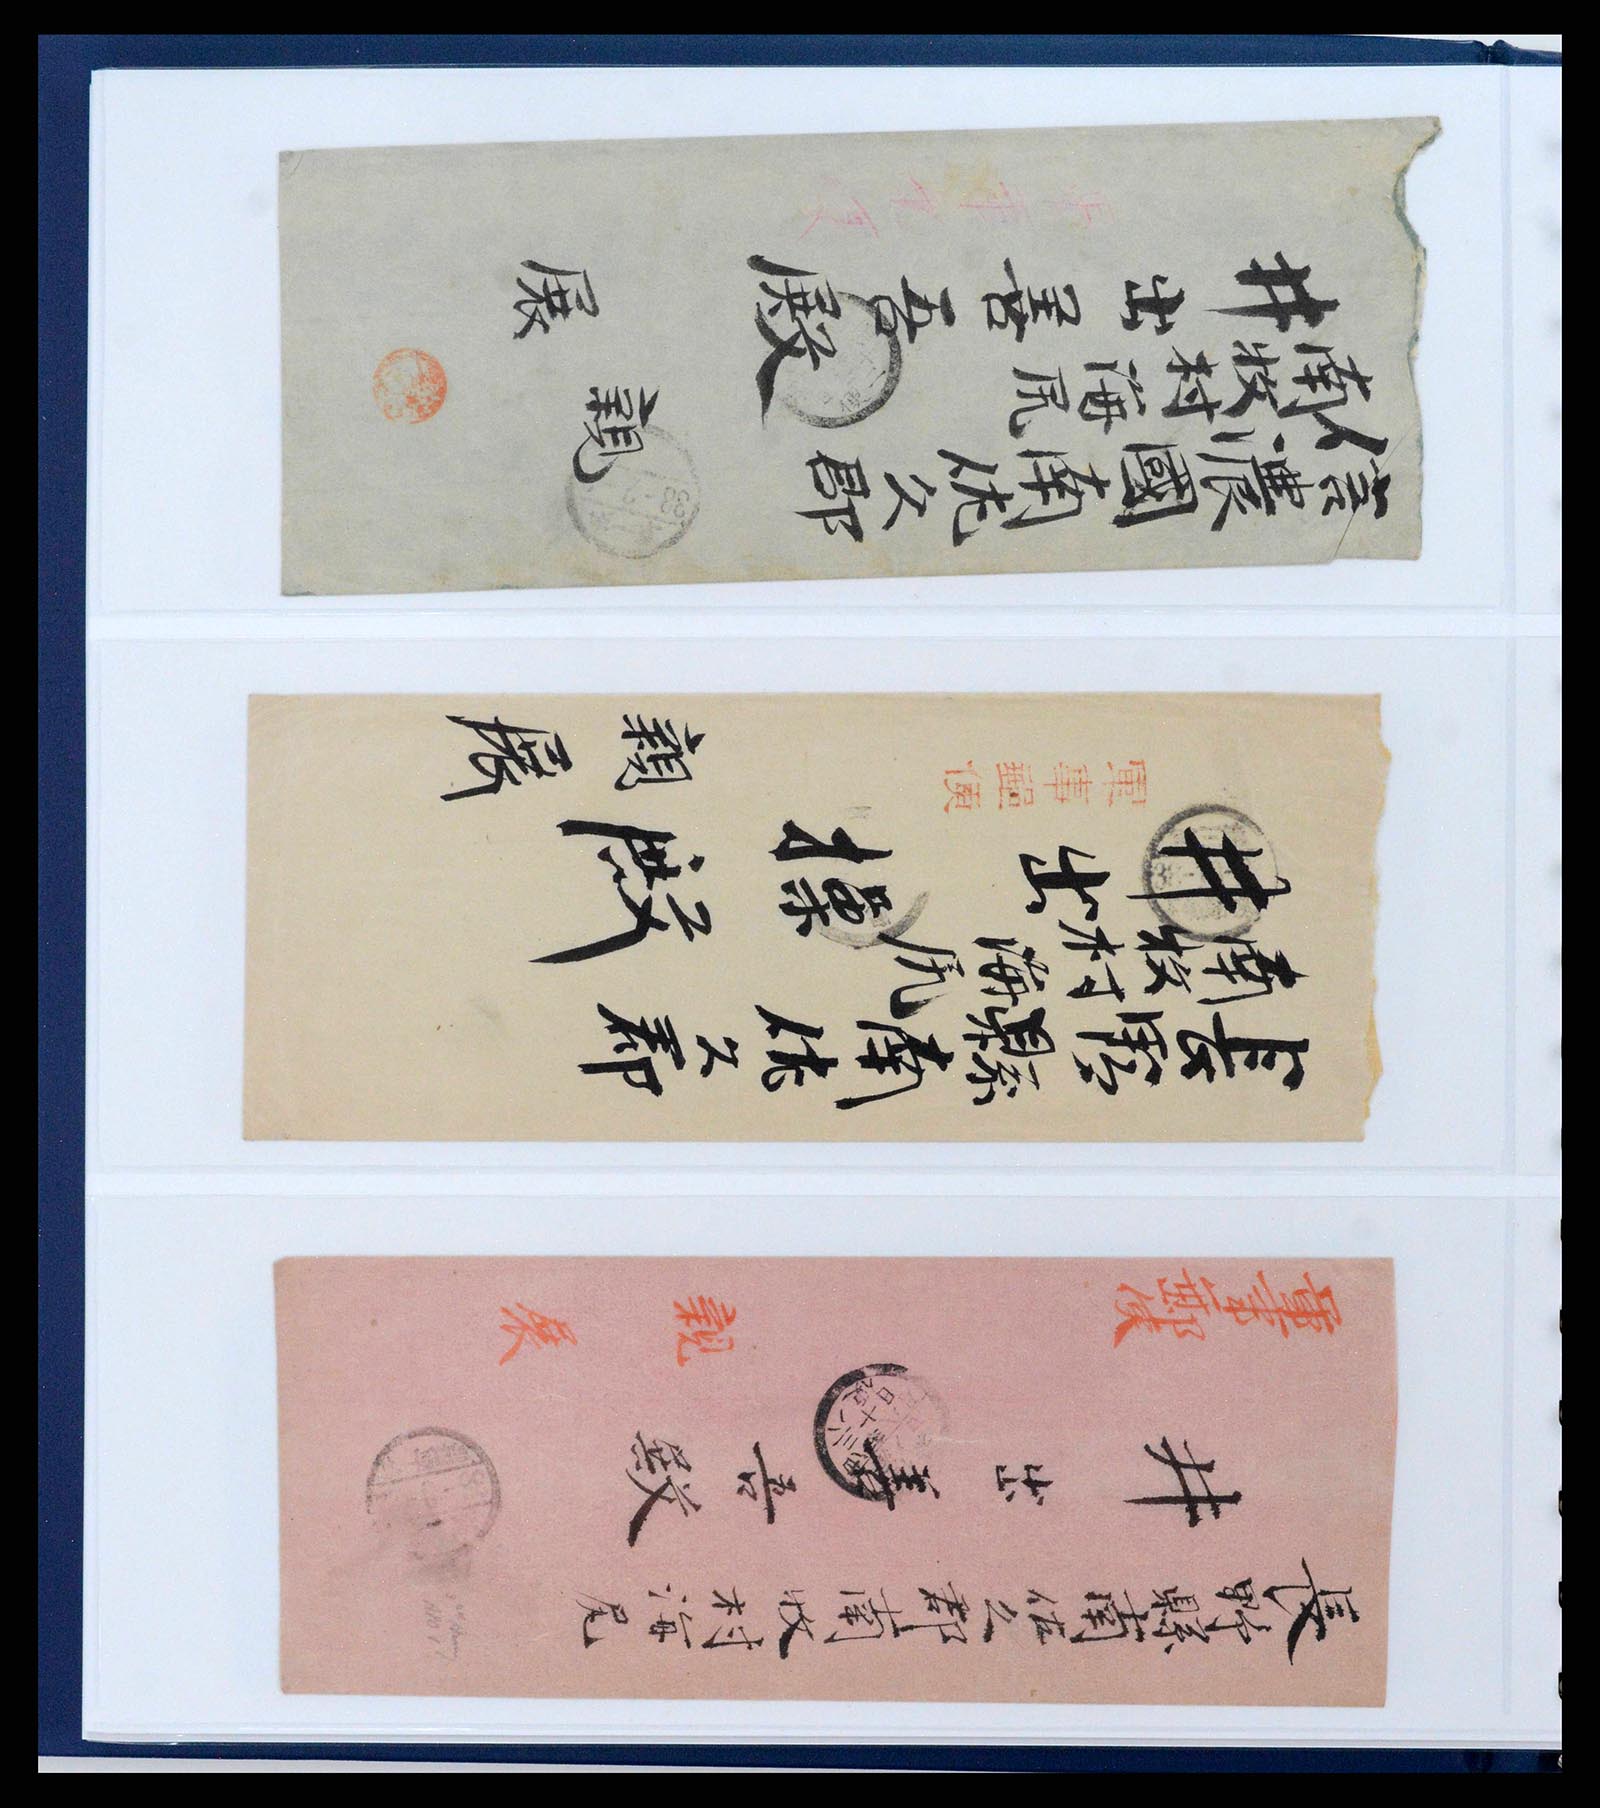 信濃國南佐久郡
南牧村海尻
井出善吾殿
親展
長野縣南佐久郡
南牧村海尻
井出操殿
親展
軍事郵便
長野縣南佐久郡南牧村海尻
井出善吾殿
親展
軍事郵便